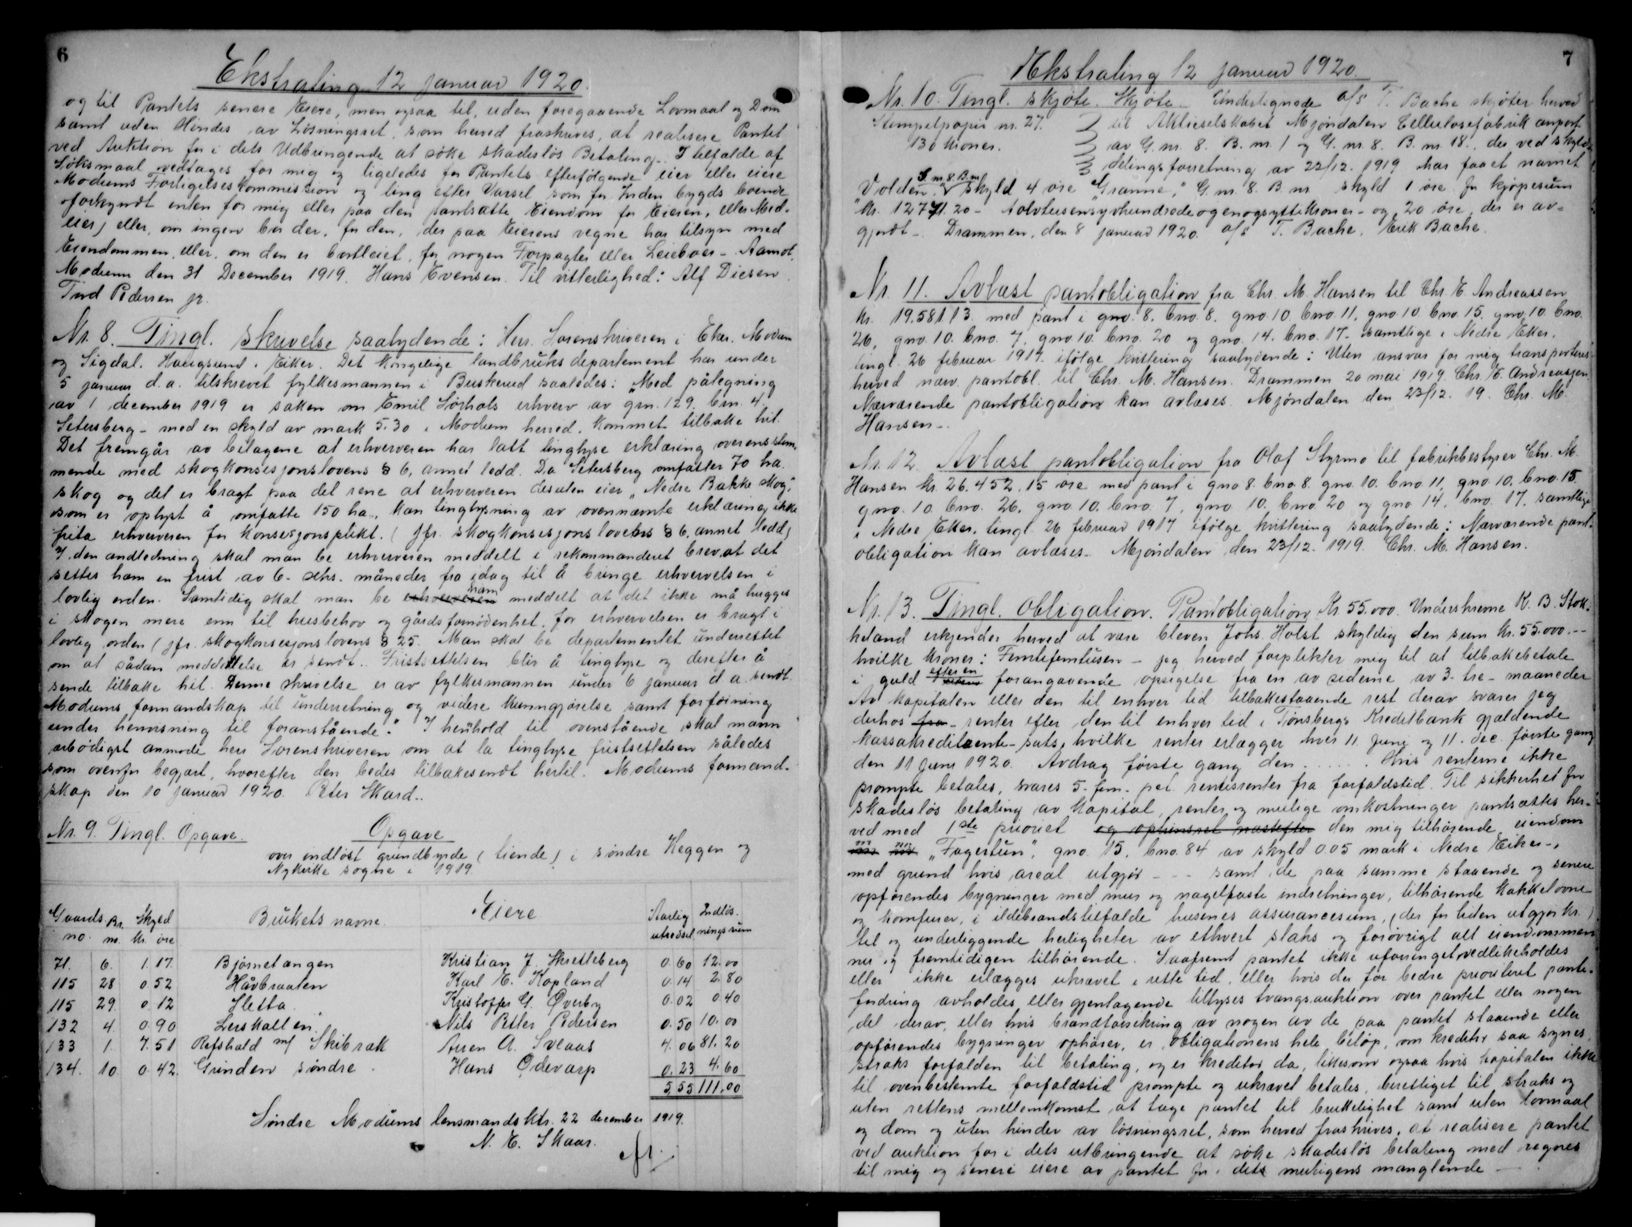 6
Ekstrating 12 januar 1920.
og til Pantets senere Eiere, men ogsaa til, uden foregaaende Lovmaal og Dom
samt uden Hinder av Løsningsret, som herved fraskrives, at realisere Pantet
ved Auktion for i dets Udbringende at søke skadesløs Betaling. I tilfælde af
Søksmaal vedtages for mig og ligeledes for Pantets efterfølgende eier eller eiere
Modums Forligelseskommission og ting efter Varsel som for Inden bygds boende
forkyndt enten for mig eller paa den pantsatte Eiendom for Eieren, eller Med-
eier, eller, om ingen bor der, for den, der paa Eierens vegne har tilsyn med
Eiendommen, eller, om den er bortleiet, for nogen Forpagter eller Leieboer - Aamot,
Modum den 31 December 1919. Hans Evensen. Til vitterlighed: Alf Diesen.
Tind Pedersen jr.
Nr. 8. Tingl. skrivelse saalydende: Herr Sorenskriveren i Eker, Modum
og Sigdal. Haugsund i Eiker. Det kongelige landbruksdepartement har under
5 januar d.a. tilskrevet fylkesmannen i Buskerud saaledes: Med påtegning
av 1 december 1919 er saken om Emil Sørhols erhverv av grn. 129. bnr. 4
Setersberg - med en skyld av mark 5.30 i Modum herred, kommet tilbake hit.
Det fremgår av bilagene at erhververen har latt tinglyse erklæring overensstem-
mende med skogkonsesjonslovens § 6, annet ledd. Da Setersberg omfatter 70 ha.
skog og det er bragt paa det rene at erhververen desuten eier "Nedre Bakke skog",
som er oplyst å omfatte 150 ha., kan tinglysning av ovennævnte erklæring ikke
frita erhververen for konsesjonsplikt. (jfr. skogkonsesjonslovens § 6, annet ledd)
I den andledning skal man be erhververen meddelt i rekommandert brev, at det
settes ham en frist av 6 - seks - måneder fra idag til å bringe erhvervelsen i
lovlig orden. Samtidig skal man be erhververen ham meddelt at det ikke må hugges
i skogen mere enn til husbehov og gårds fornødenhet, før erhvervelsen er bragt i
lovlig orden (jfr. skogkonsesjonslovens § 25. Man skal be departementet underrettet
om at sådan meddelelse er sendt. Fristsettelsen blir å tinglyse og derefter å
sende tilbake hit. Denne skrivelse er av fylkesmannen under 6 januar d.a. sendt
Modums formandskap til underretning og videre kunngjørelse samt forføining
under henvisning til foranstående." I henhold til ovenstående skal mann
ærbødigst anmode herr Sorenskriveren om at la tinglyse fristsettelsen således
som ovenfor begjært, hvorefter den bedes tilbakesendt hertil. Modums formand-
skap den 10 januar 1920. Peter Skard..
Nr. 9. Tingl. Opgave. Opgave
over indløst grundbyrde (tiende) i søndre Heggen og
Nykirke sogne i 1919.
Gaards no. Br. nr. Skyld kr. øre Brukets navne. Eiere Aarlig utredsel Indløs-ningssum
71. 6. 1.17 Bjørnetangen Kristian J. Skretteberg 0.60 12.00
115 28 0.52 Håvbraaten Karl E. Hopland 0.14 2.80
115 29. 0.12 Sletta Kristoffer G. Øverby 0.02 0.40
132 4. 0.90 Lerskallen Nils Petter Pedersen 0.50 10.00
133 1. 7.51 Refshald m/ Skibrak Anen A. Sveaas 4.06 81.20
134. 10 0.42. Grinden søndre. Hans Odevarp 0.23 4.60
5,55 111.00
Søndre Modums lensmandsktr. 22 december 1919.
N. E. Skaar.
7
Ekstrating 12 januar 1920.
Nr. 10. Tingl. skjøte. Skjøte. Undertegnede a/s T. Bache skjøter herved
Stempelpapir nr. 27. til Aktieselskabet Mjøndalen Cellulosefabrik anpart
130 kroner. av G. nr. 8. B. nr. 1 og G. nr. 8. B. nr. 18., der ved skyld-
delingsforretning av 22/12. 1919 har faaet navnet
"Volden" G. nr. 8 B. nr. skyld 4 øre "Granne," G. nr. 8. B nr. skyld 1 øre for kjøpesum
kr. 12771.20 - Tolvtusensyvhundredeogenogsyttikroner - og 20 øre, der er av-
gjordt. Drammen, den 8 januar 1920. a/s T. Bache. Erik Bache.
Nr. 11. Avlæst pantobligation fra Chr. M. Hansen til Chr. E. Andreassen
kr. 19.581.13 med pant i gno. 8. bno. 8. gno 10 bno 11, gno 10 bno. 15, gno. 10. bno.
26, gno 10. bno. 7, gno 10. bno. 20 og gno. 14. bno. 17 - samtlige i Nedre Eker.
tingl. 26 februar 1917. ifølge kvittering saalydende: Uten ansvar for mig transporteres
herved nærv. pantobl. til Chr. M. Hansen. Drammen 20 mai 1919. Chr. E. Andreassen.
Nærværende pantobligation kan avlæses. Mjøndalen den 23/12. 19. Chr. M.
Hansen.
Nr. 12. Avlæst pantobligation fra Olaf Styrmo til fabrikbestyrer Chr. M.
Hansen kr. 26.452.15 øre med pant i gno 8. bno. 8. gno. 10. bno 11, gno 10. bno. 15.
gno. 10. bno. 26, gno 10. bno. 7, gno 10. bno 20 og gno 14. bno. 17. samtlige
i Nedre Eker. tingl. 26 februar 1917 ifølge kvittering saalydende: Nærværende pant-
obligation kan avlæses. Mjøndalen den 23/12. 1919. Chr. M. Hansen.
Nr. 13. Tingl. obligation. Pantobligation. Kr. 55.000. Underskrevne K. B. Stok-
keland erkjender herved at være bleven Johs Holst skyldig den sum kr. 55.000.--
hvilke kroner: Femtifemtusen - jeg herved forplikter mig til at tilbakebetale
i guld efter en forangaaende opsigelse fra en av siderne av 3 - tre - maaneder
Av kapitalen eller den til enhver tid tilbakestaaende rest derav svarer jeg
derhos fra - renter efter den til enhver tid i Tønsbergs Kreditbank gjældende
kassakreditrente-sats, hvilke renter erlægges hver 11 juni og 11. dec. første gang
den 11 juni 1920. Avdrag første gang den . . . . . Hvis renterne ikke
prompte betales, svares 5 - fem - pct. rentesrenter fra forfaldstid. Til sikkerhet for
skadesløs betaling av kapital, renter og mulige omkostninger pantsættes her-
ved med 1ste prioritet og opteinsret næstefter den mig tilhørende eiendom
"Fagertun", gno. 15. bno. 84 av skyld 0.05 mark i Nedre Eiker -,
med grund hvis areal utgjør - - - samt de paa samme staaende og senere
opførendes bygninger med mur og nagelfaste indretninger, tilhørende kakkelovne
og komfurer, i ildebrandstilfælde husenes assurancesum, (der for tiden utgjør kr. )
tel og underliggende herligheter av ethvert slaks og forøvrigt alt eiendommen
nu og fremtidigen tilhørende. Saafremt pantet ikke uforringet vedlikeholdes
eller ikke erlægges ukrævet i rette tid, eller hvis der for bedre prioritert pante-
fordring avholdes, eller gjentagende tillyses tvangsauktion over pantet eller nogen
del derav, eller hvis brandforsikring av nogen av de paa pantet staaende eller
opførendes bygninger ophører, er obligationens hele beløp, om kreditor saa synes,
straks forfalden til betaling, og er kreditor da, likesom ogsaa hvis kapitalen ikke
til ovenbestemte forfaldstid prompte og ukrævet betales, berettiget til straks og
uten rettens mellemkomst at tage pantet til brukelighet samt uten lovmaal
og dom og uten hinder av løsningsret, som herved fraskrives, at realisere pantet
ved auktion for i dets utbringende at søke skadesløs betaling med regres
til mig og senere eiere av pantet for dets muligens manglende -